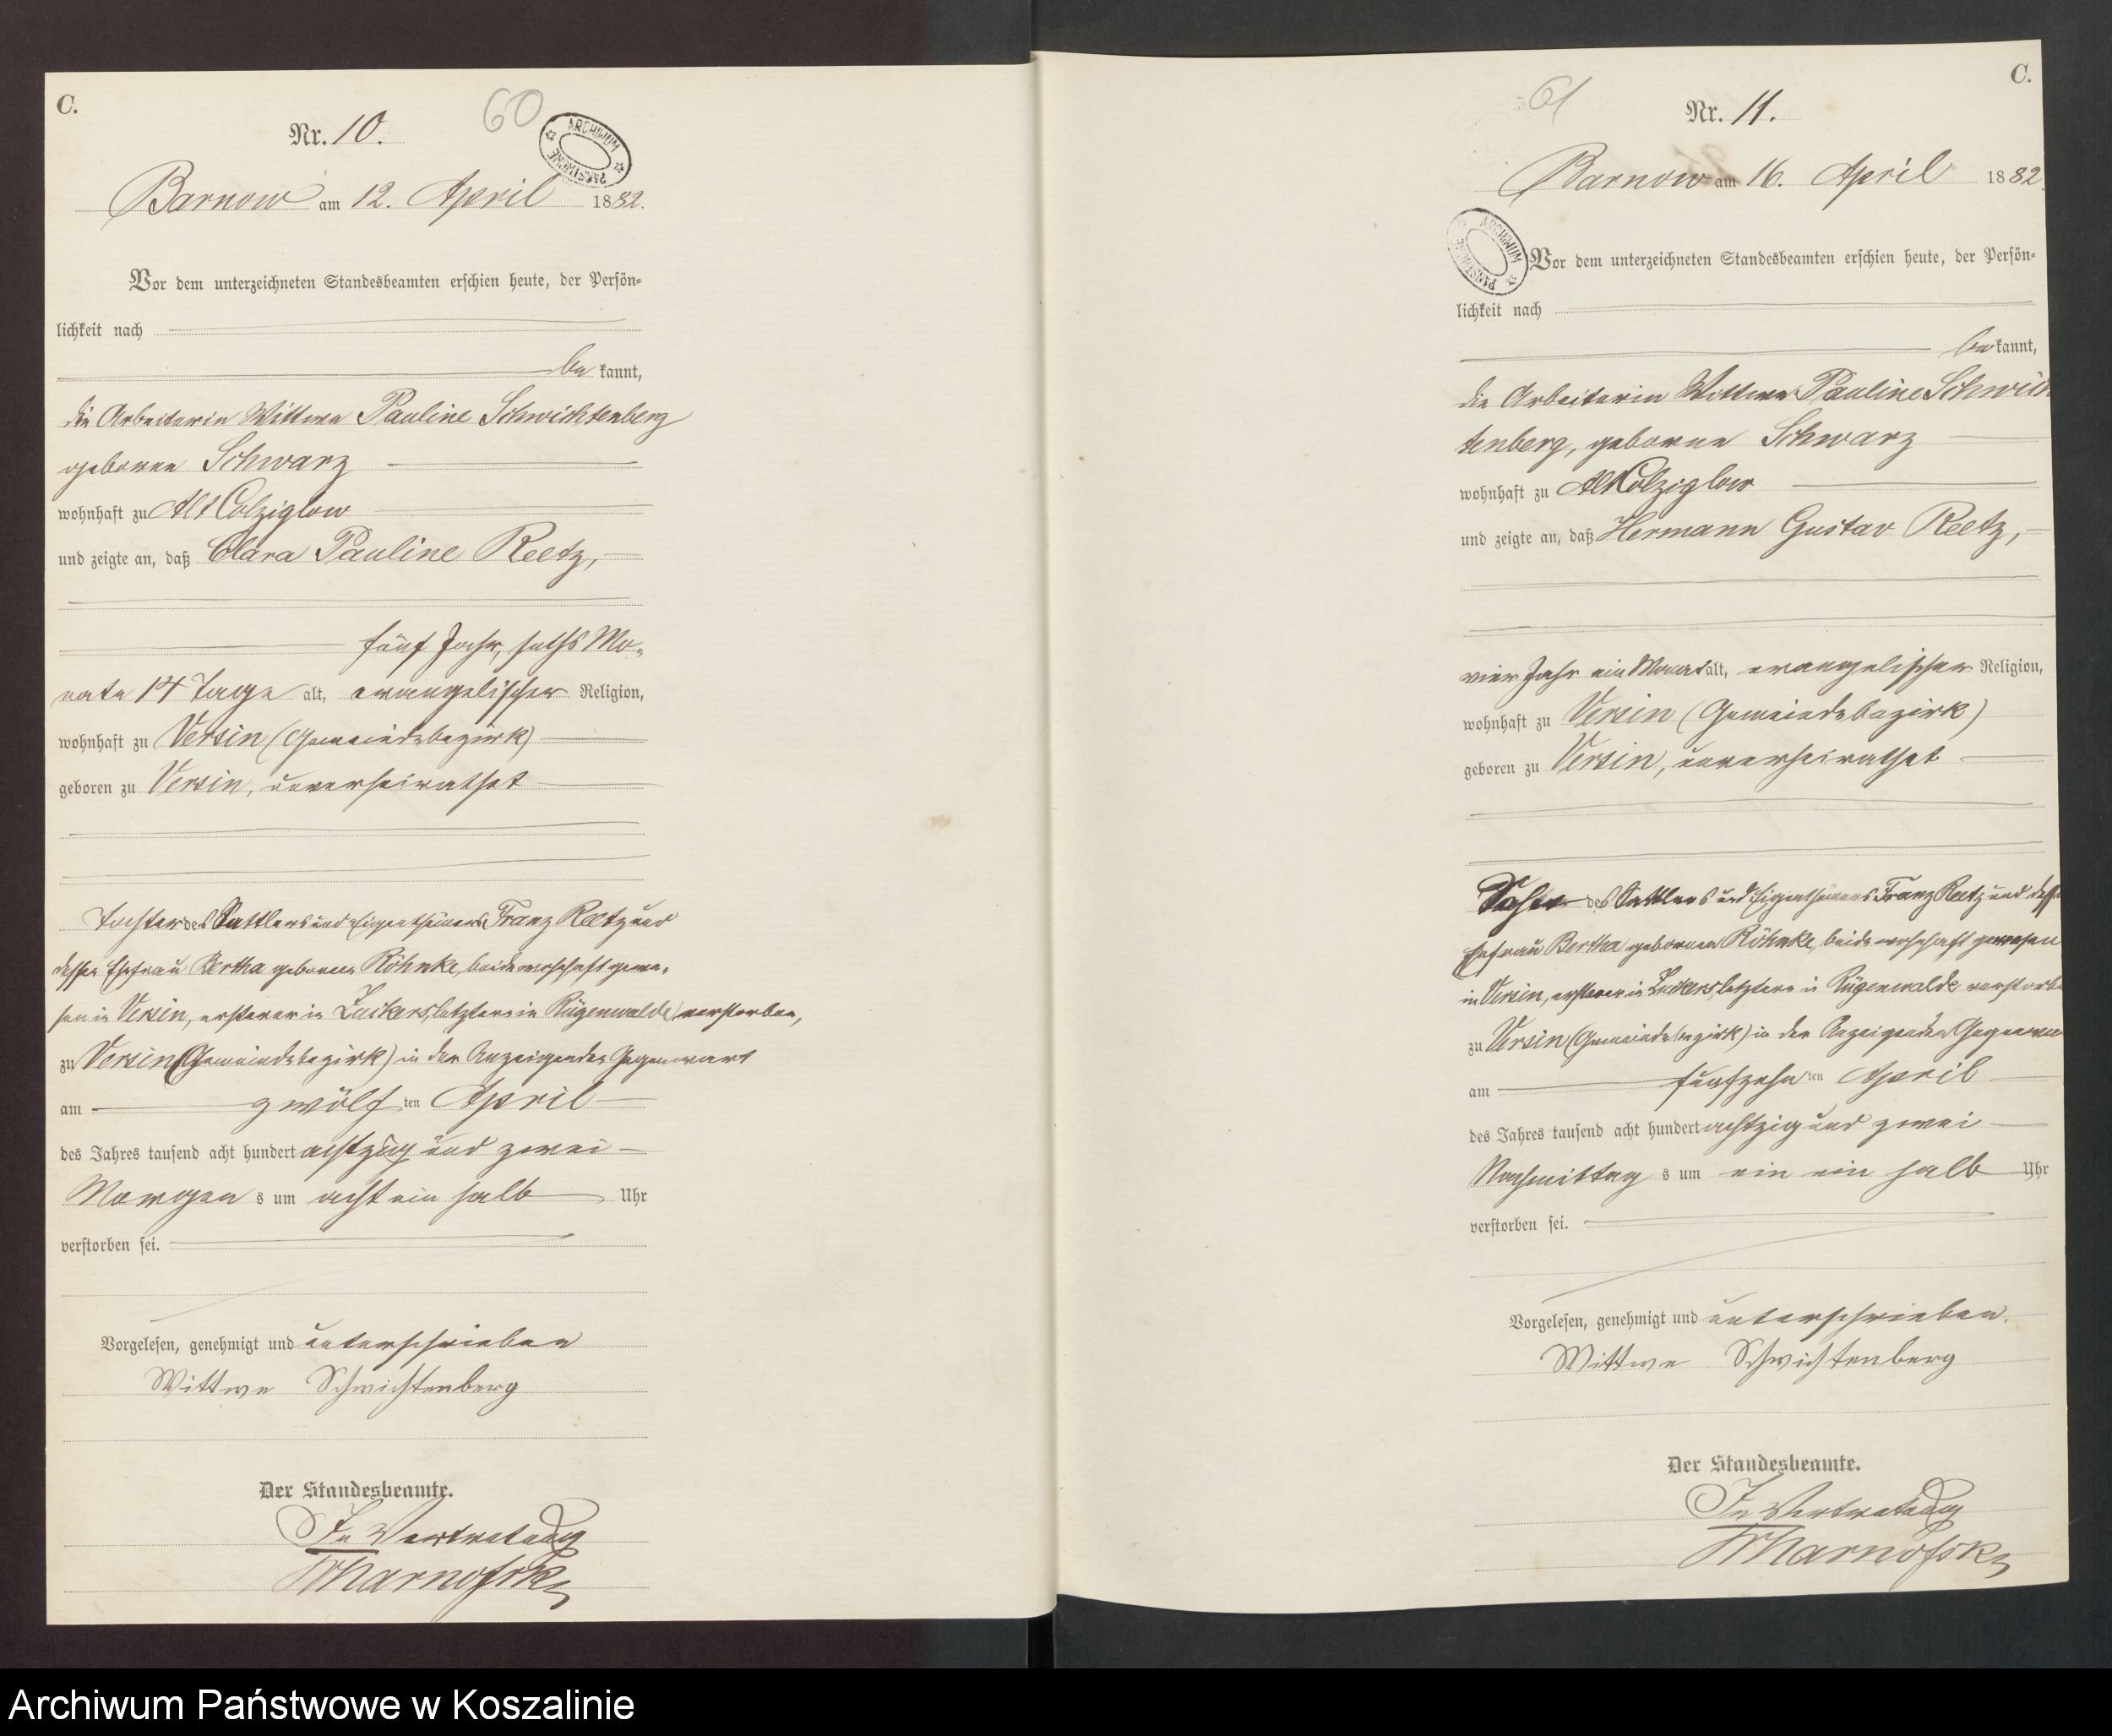 C.
60
Nr. 10.
ARCHIWUM PAŃSTWOWE
Barnow am 12. April 1882.
Vor dem unterzeichneten Standesbeamten erschien heute, der Persön-
lichkeit nach
bekannt,
die Arbeiterin Wittwe Pauline Schwichtenberg
geborne Schwarz
wohnhaft zu Alt Colziglow
und zeigte an, daß Clara Pauline Reetz,
fünf Jahr, sechs Mo-
nate 14 Tage alt, evangelischer Religion,
wohnhaft zu Versin (Gemeindebezirk)
geboren zu Versin, unverheirathet
Tochter des Sattlers und Eigenthümers Franz Reetz und
dessen Ehefrau Bertha geborene Röhnke, beide wohnhaft gewe-
sen in Versin, ersterer in Lückers, letztere in Rügenwalde verstorben,
zu Versin (Gemeindebezirk) in der Anzeigenden Gegenwart
am zwölften April
des Jahres tausend acht hundert achtzig und zwei
Morgens um acht ein halb Uhr
verstorben sei.
Vorgelesen, genehmigt und unterschrieben
Wittwe Schwichtenberg
Der Standesbeamte.
In Vertretung
C.
61
Nr. 11.
Barnow am 16. April 1882
ARCHIWUM PAŃSTWOWE
Vor dem unterzeichneten Standesbeamten erschien heute, der Persön-
lichkeit nach
bekannt,
die Arbeiterin Wittwe Pauline Schwich
tenberg, geborne Schwarz
wohnhaft zu Alt Colziglow
und zeigte an, daß Hermann Gustav Reetz,
vier Jahr ein Monat alt, evangelischer Religion,
wohnhaft zu Versin (Gemeindebezirk)
geboren zu Versin, unverheirathet
Sohn des Sattlers und Eigenthümers Franz Reetz und dess
Ehefrau Bertha gebornen Röhnke, beide wohnhaft gewesen
in Versin, ersterer in Lückers, letztere in Rügenwalde verstorbe
zu Versin (Gemeindebezirk) in der Anzeigenden Gegenwa
am fünfzehnten April
des Jahres tausend acht hundert achtzig und zwei
Nachmittags um ein ein halb Uhr
verstorben sei.
Vorgelesen, genehmigt und unterschrieben.
Wittwe Schwichtenberg
Der Standesbeamte.
In Vertretung
Archiwum Państwowe w Koszalinie